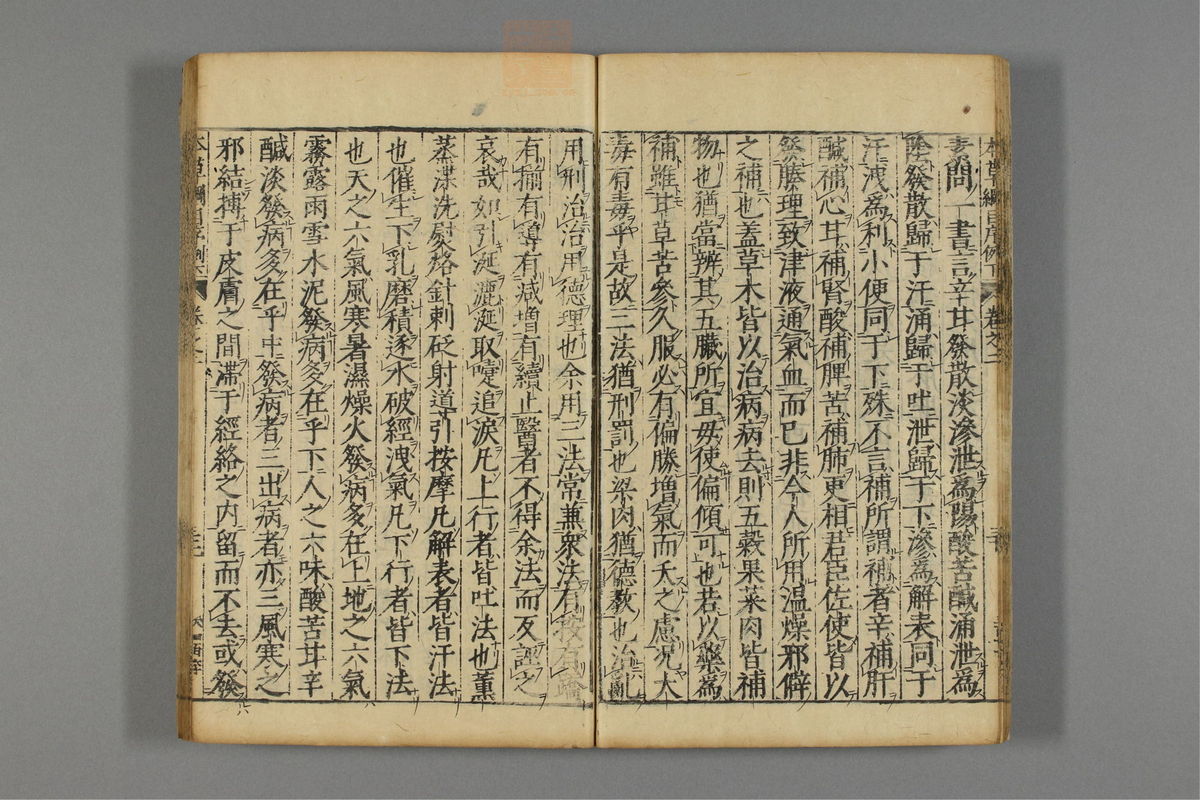 素問一書言辛甘發散淡滲泄為陽酸苦鹹涌泄為
陰發散歸于汗涌歸于吐泄歸于下滲為解表同于
汗洩為利小便同于下殊不言補所謂補者辛補肝
鹹補心甘補腎酸補脾苦補肺更相君臣佐使皆以
發腠理致津液通氣血而已非今人所用温燥邪僻
之補也蓋草木皆以治病病去則五穀果菜肉皆補
物也猶當辨其五臟所宜毋使偏傾可也若以藥為
補雖甘草苦參久服必有偏勝增氣而夭之慮况大
毒有毒乎是故三法猶刑罰也梁肉猶德教也治亂
用刑治治用德理也余用三法常兼衆法有按有蹻
有揃有導有減增有續止醫者不得余法而反誣之
哀哉如引涎漉涎取嚏追淚凡上行者皆吐法也薰
蒸渫洗熨烙針刺砭射道引按摩凡解表者皆汗法
也催生下乳磨積逐水破經洩氣凡下行者皆下法
也天之六氣風寒暑濕燥火發病多在上地之六氣
霧露雨雪水泥發病多在乎下人之六味酸苦甘辛
鹹淡發病多在乎中發病者三出病者亦三風寒之
邪結搏于皮膚之間滯于經絡之内留而不去或發